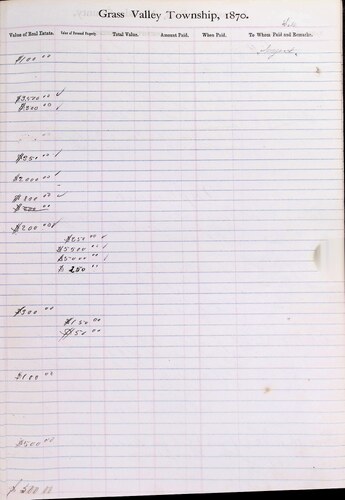 Grass Valley Township, 1870.
Value of Real Estate. Value of Personal Property Total Value. Amount Paid. When Paid. To Whom Paid and Remarks.
$100 00
$3500 00 ✓
$200 00 ✓
$250 00 ✓
$2000 00 ✓
$800 00 ✓
$500 00
$200 00 ✓
$250 00 ✓
$5500 00 ✓
$5000 00 ✓
$ 250 00
$300 00
$150 00
$150 00
$100 00
$500 00
$ 500 00